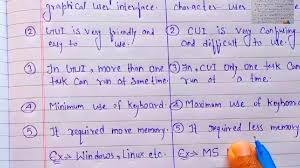 graphical user interface. character user
② GUI is very friendly and ② CUI is very confusing
easy to use. and difficult to use.
③ In GUI, more than one ③ In CUI, only one task can
task can run at same time. run at a time.
④ Minimum use of keyboard. ④ Maximum use of keyboard
⑤ It required more memory. ⑤ It required less memory
Ex→ Windows, Linux etc. Ex→ MS